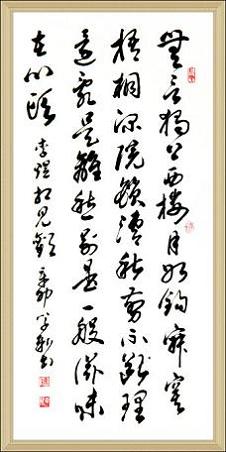 無言獨上西樓月如鉤寂寞
梧桐深院鎖清秋剪不斷理
還亂是離愁別是一般滋味
在心頭 李煜相見歡 辛卯 書